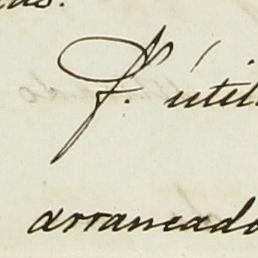 F. útil
arrancado